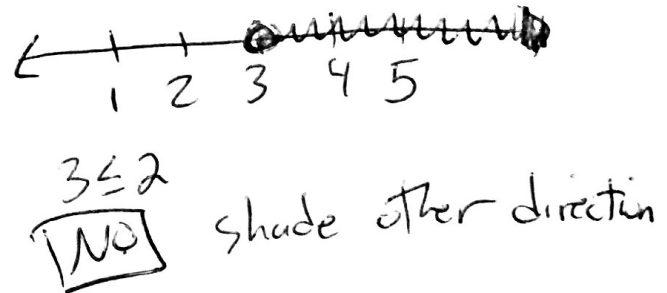 1 2 3 4 5
3≤2
NO shade other direction